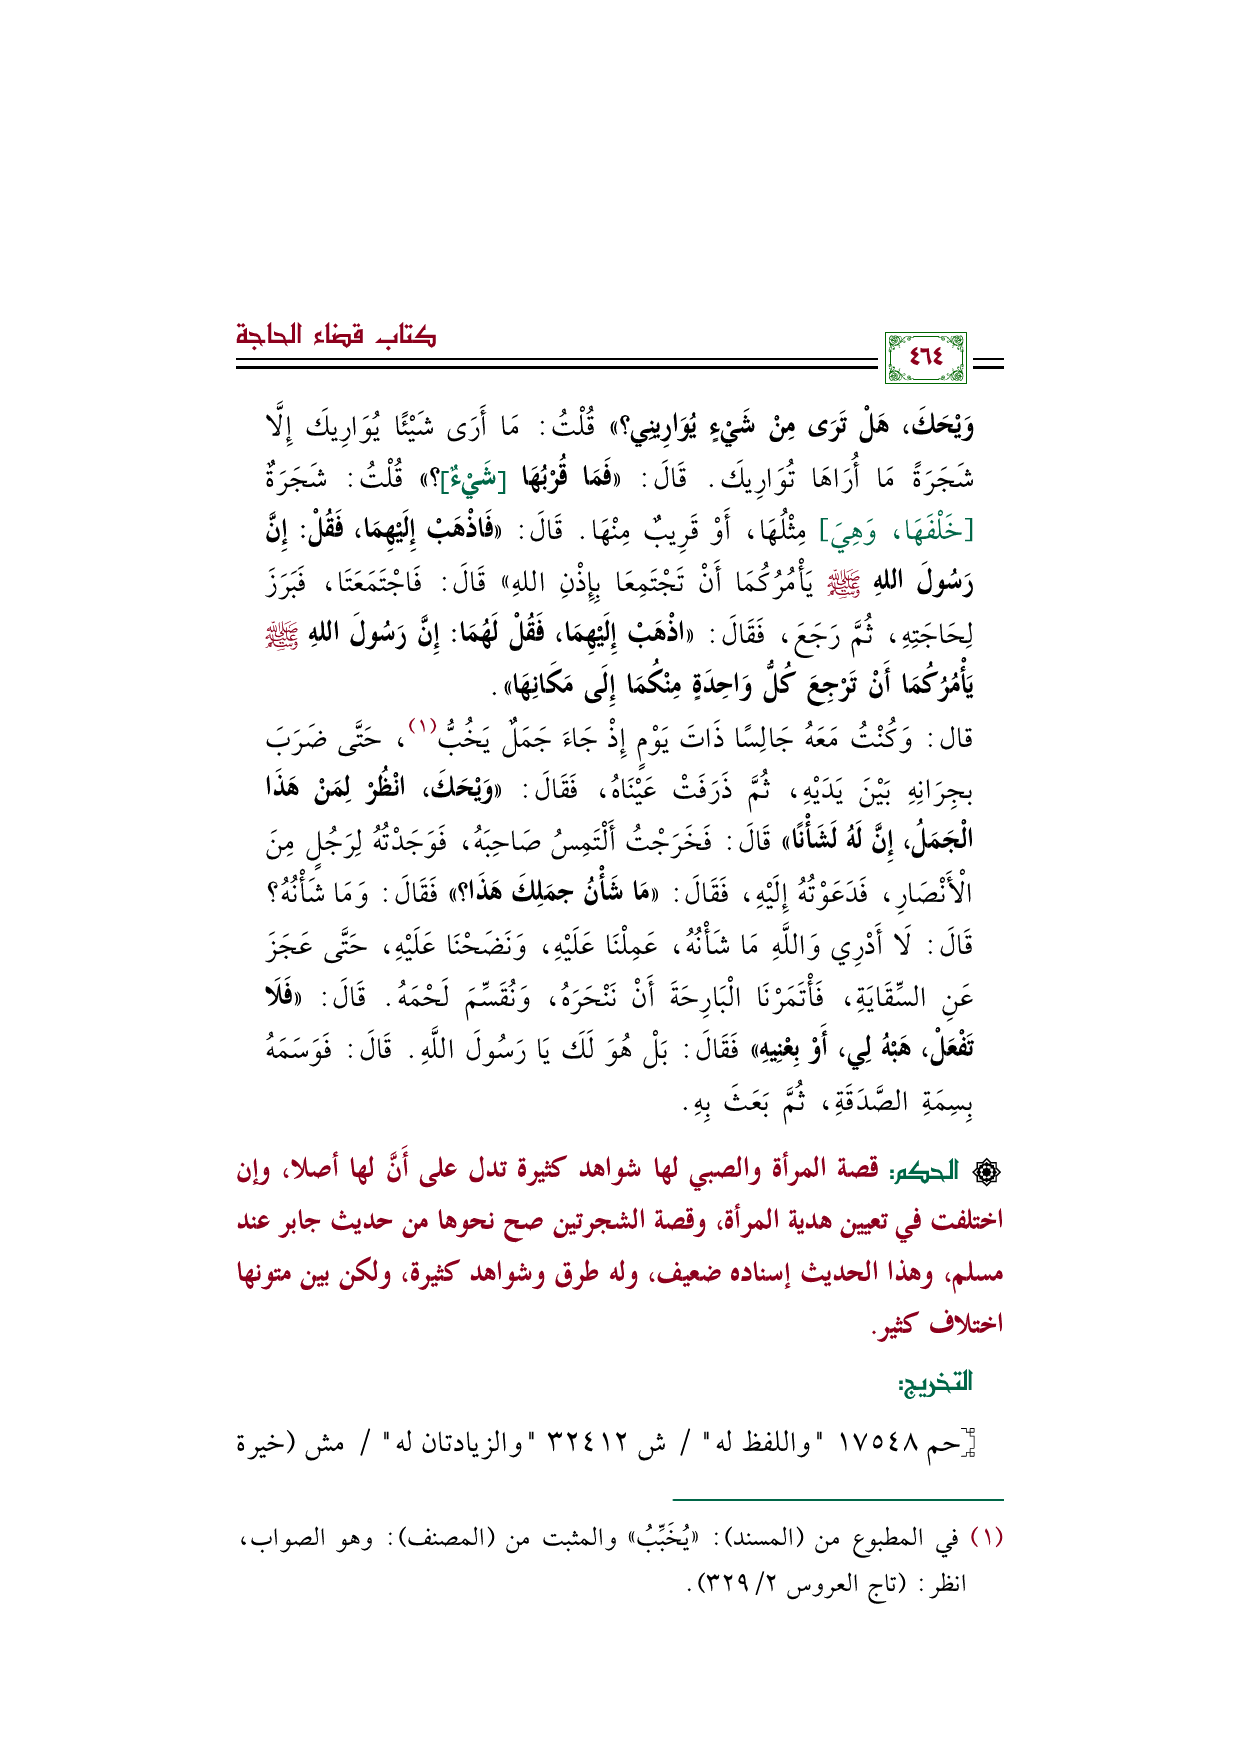 كتاب قضاء الحاجة
٤٦٤
وَيْحَكَ، هَلْ تَرَى مِنْ شَيْءٍ يُوَارِينِي؟» قُلْتُ: مَا أَرَى شَيْئًا يُوَارِيكَ إِلَّا
شَجَرَةً مَا أُرَاهَا تُوَارِيكَ. قَالَ: «فَمَا قُرْبُهَا [شَيْءٌ]؟» قُلْتُ: شَجَرَةٌ
[خَلْفَهَا، وَهِيَ] مِثْلُهَا، أَوْ قَرِيبٌ مِنْهَا. قَالَ: «فَاذْهَبْ إِلَيْهِمَا، فَقُلْ: إِنَّ
رَسُولَ اللهِ ﷺ يَأْمُرُكُمَا أَنْ تَجْتَمِعَا بِإِذْنِ اللهِ» قَالَ: فَاجْتَمَعَتَا، فَبَرَزَ
لِحَاجَتِهِ، ثُمَّ رَجَعَ، فَقَالَ: «اذْهَبْ إِلَيْهِمَا، فَقُلْ لَهُمَا: إِنَّ رَسُولَ اللهِ ﷺ
يَأْمُرُكُمَا أَنْ تَرْجِعَ كُلُّ وَاحِدَةٍ مِنْكُمَا إِلَى مَكَانِهَا».
قال: وَكُنْتُ مَعَهُ جَالِسًا ذَاتَ يَوْمٍ إِذْ جَاءَ جَمَلٌ يَخُبُّ(١)، حَتَّى ضَرَبَ
بجِرَانِهِ بَيْنَ يَدَيْهِ، ثُمَّ ذَرَفَتْ عَيْنَاهُ، فَقَالَ: «وَيْحَكَ، انْظُرْ لِمَنْ هَذَا
الْجَمَلُ، إِنَّ لَهُ لَشَأْنًا» قَالَ: فَخَرَجْتُ أَلْتَمِسُ صَاحِبَهُ، فَوَجَدْتُهُ لِرَجُلٍ مِنَ
الْأَنْصَارِ، فَدَعَوْتُهُ إِلَيْهِ، فَقَالَ: «مَا شَأْنُ جمَلِكَ هَذَا؟» فَقَالَ: وَمَا شَأْنُهُ؟
قَالَ: لَا أَدْرِي وَاللَّهِ مَا شَأْنُهُ، عَمِلْنَا عَلَيْهِ، وَنَضَحْنَا عَلَيْهِ، حَتَّى عَجَزَ
عَنِ السِّقَايَةِ، فَأْتَمَرْنَا الْبَارِحَةَ أَنْ نَنْحَرَهُ، وَنُقَسِّمَ لَحْمَهُ. قَالَ: «فَلَا
تَفْعَلْ، هَبْهُ لِي، أَوْ بِعْنِيهِ» فَقَالَ: بَلْ هُوَ لَكَ يَا رَسُولَ اللَّهِ. قَالَ: فَوَسَمَهُ
بِسِمَةِ الصَّدَقَةِ، ثُمَّ بَعَثَ بِهِ.
الحكم: قصة المرأة والصبي لها شواهد كثيرة تدل على أَنَّ لها أصلا، وإن
اختلفت في تعيين هدية المرأة، وقصة الشجرتين صح نحوها من حديث جابر عند
مسلم، وهذا الحديث إسناده ضعيف، وله طرق وشواهد كثيرة، ولكن بين متونها
اختلاف كثير.
التخريج:
[حم ١٧٥٤٨ "واللفظ له" / ش ٣٢٤١٢ "والزيادتان له" / مش (خيرة
(١) في المطبوع من (المسند): «يُخَبِّبُ» والمثبت من (المصنف): وهو الصواب،
انظر: (تاج العروس ٢/ ٣٢٩).